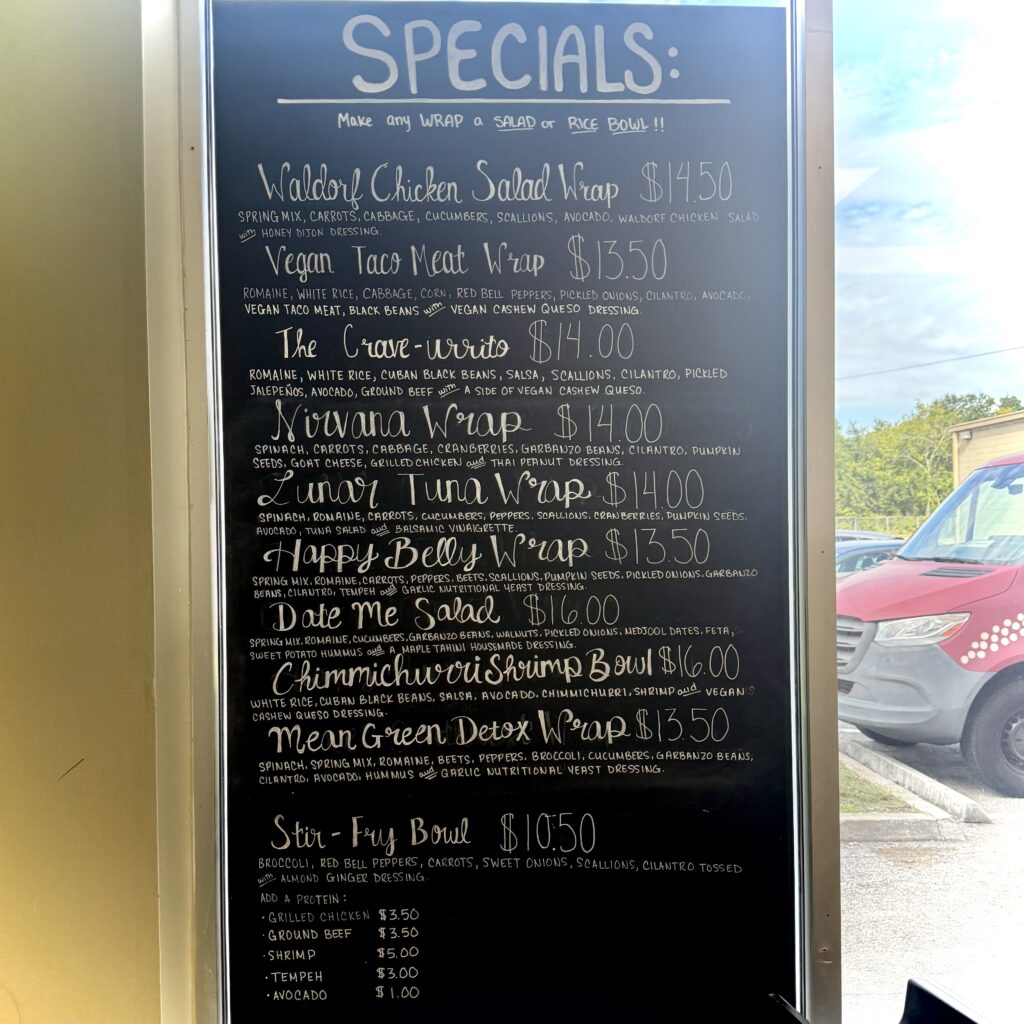 SPECIALS:
Make any WRAP a SALAD or RICE BOWL!!
Waldorf Chicken Salad Wrap $14.50
SPRING MIX, CARROTS, CABBAGE, CUCUMBERS, SCALLIONS, AVOCADO, WALDORF CHICKEN SALAD
with HONEY DIJON DRESSING.
Vegan Taco Meat Wrap $13.50
ROMAINE, WHITE RICE, CABBAGE, CORN, RED BELL PEPPERS, PICKLED ONIONS, CILANTRO, AVOCADO,
VEGAN TACO MEAT, BLACK BEANS with VEGAN CASHEW QUESO DRESSING.
The Crave-urrito $14.00
ROMAINE, WHITE RICE, CUBAN BLACK BEANS, SALSA, SCALLIONS, CILANTRO, PICKLED
JALEPEÑOS, AVOCADO, GROUND BEEF with A SIDE OF VEGAN CASHEW QUESO.
Nirvana Wrap $14.00
SPINACH, CARROTS, CABBAGE, CRANBERRIES, GARBANZO BEANS, CILANTRO, PUMPKIN
SEEDS, GOAT CHEESE, GRILLED CHICKEN and THAI PEANUT DRESSING.
Lunar Tuna Wrap $14.00
SPINACH, ROMAINE, CARROTS, CUCUMBERS, PEPPERS, SCALLIONS, CRANBERRIES, PUMPKIN SEEDS,
AVOCADO, TUNA SALAD and BALSAMIC VINAIGRETTE.
Happy Belly Wrap $13.50
SPRING MIX, ROMAINE, CARROTS, PEPPERS, BEETS, SCALLIONS, PUMPKIN SEEDS, PICKLED ONIONS, GARBANZO
BEANS, CILANTRO, TEMPEH and GARLIC NUTRITIONAL YEAST DRESSING
Date Me Salad $16.00
SPRING MIX, ROMAINE, CUCUMBERS, GARBANZO BEANS, WALNUTS, PICKLED ONIONS, MEDJOOL DATES, FETA,
SWEET POTATO HUMMUS and A MAPLE TAHINI HOUSEMADE DRESSING.
Chimmichurri Shrimp Bowl $16.00
WHITE RICE, CUBAN BLACK BEANS, SALSA, AVOCADO, CHIMMICHURRI, SHRIMP and VEGAN
CASHEW QUESO DRESSING.
Mean Green Detox Wrap $13.50
SPINACH, SPRING MIX, ROMAINE, BEETS, PEPPERS, BROCCOLI, CUCUMBERS, GARBANZO BEANS,
CILANTRO, AVOCADO, HUMMUS and GARLIC NUTRITIONAL YEAST DRESSING.
Stir-Fry Bowl $10.50
BROCCOLI, RED BELL PEPPERS, CARROTS, SWEET ONIONS, SCALLIONS, CILANTRO TOSSED
with ALMOND GINGER DRESSING.
ADD A PROTEIN:
· GRILLED CHICKEN $3.50
· GROUND BEEF $3.50
· SHRIMP $5.00
· TEMPEH $3.00
· AVOCADO $1.00